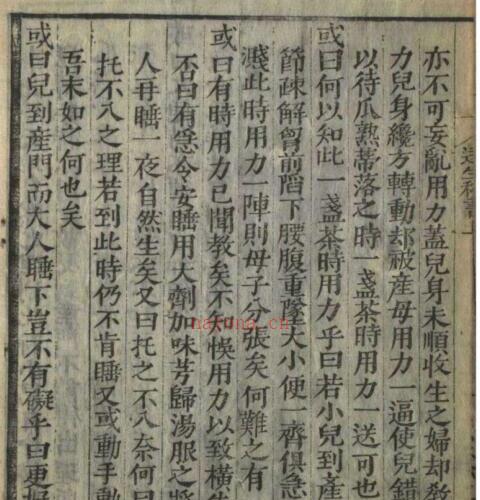 亦不可妄亂用力蓋兒身未順收生之婦却教
力兒身纔方轉動却被産母用力一逼使兒錯
以待瓜熟蒂落之時一盞茶時用力一送可也
或曰何以知此一盞茶時用力乎曰若小兒到産
節疎解胷前陷下腰腹重墜大小便一齊俱急
濺此時用力一陣則母子分張矣何難之有
或曰有時用力已聞教矣不知悞用力以致橫生
否曰有急令安睡用大劑加味芎歸湯服之將
人再睡一夜自然生矣又曰托之不入奈何曰
托不入之理若到此時仍不肯睡又或動手動
吾末如之何也矣
或曰兒到産門而大人睡下豈不有礙乎曰更好
nayona.cn